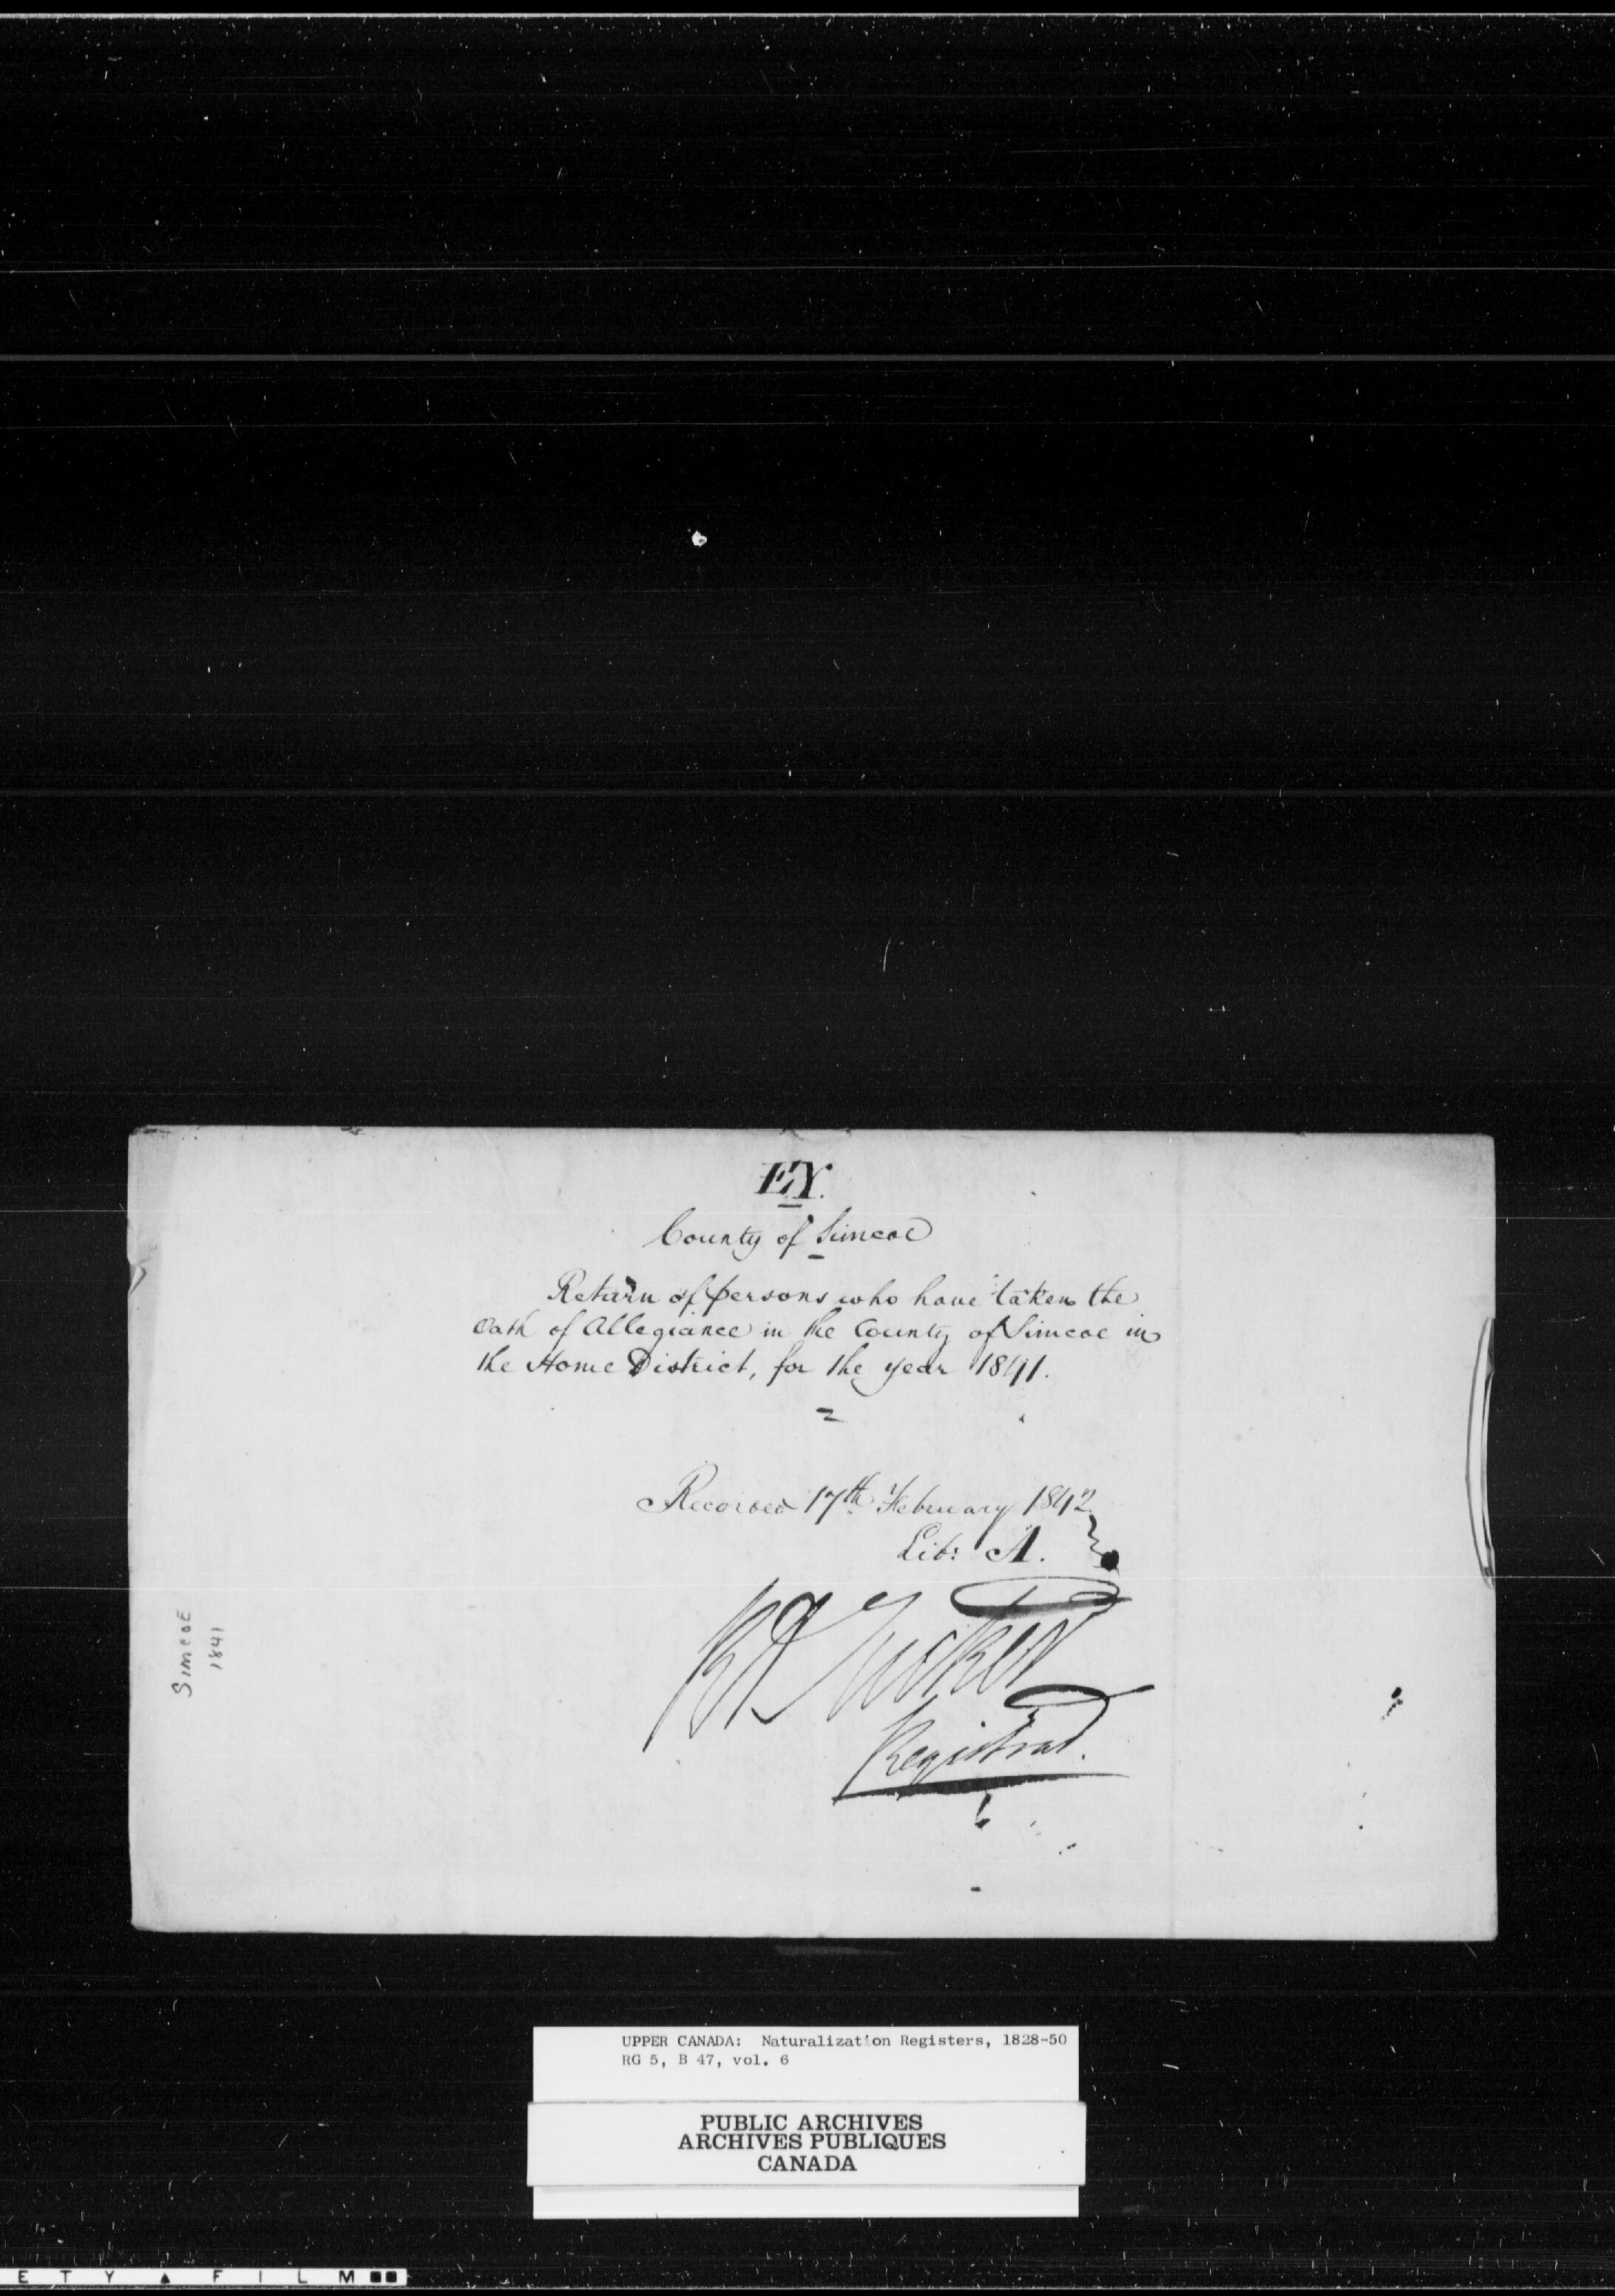 E.Y.
County of Simcoe
Return of persons who have taken the
Oath of Allegiance in the County of Simcoe in
the Home District, for the year 1841.
Recorded 17th February 1842
Lib: A.
RA Tucker
Registrar.
SIMCOE
1841
UPPER CANADA: Naturalization Registers, 1828-50
RG 5, B 47, vol. 6
PUBLIC ARCHIVES
ARCHIVES PUBLIQUES
CANADA
ETY ▲ FILM ■■